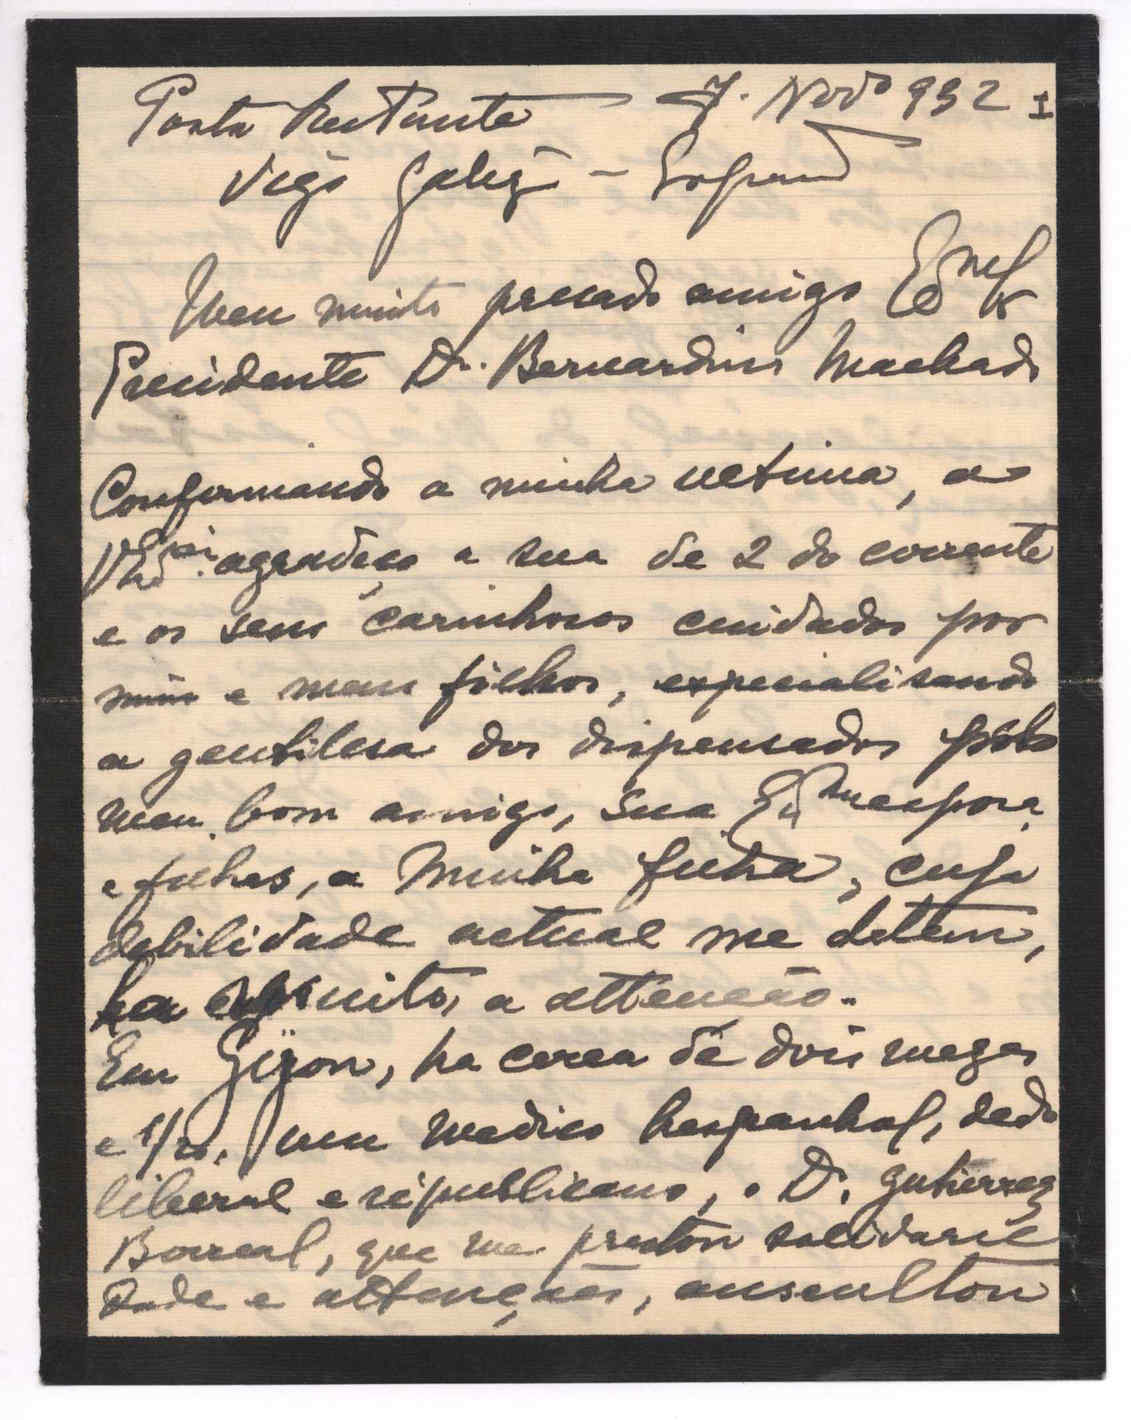 Posta Restante 7. Novo 932 I
Vigo Galiza - Espanha
Meu muito presado amigo Exmo
Presidente Dr. Bernardino Machado
Confirmando a minha ultima, a
V. Excia. agradeço a sua de 2 do corrente
e os seus carinhosos cuidados por
mim e meus filhos, especialisando
a gentilesa dos dispensados pelo
meu bom amigo, sua Exma esposa
e filhas, a minha filha, cuja
debilidade actual me detem,
ha muito, a attenção.
Em Gijon, ha cerca de dois mezes
e 1/2, um medico hespanhol, dedo
liberal e républicano, o D. Gutierrez
Borreal, que me prestou solidarie
dade e attenções, auscultou